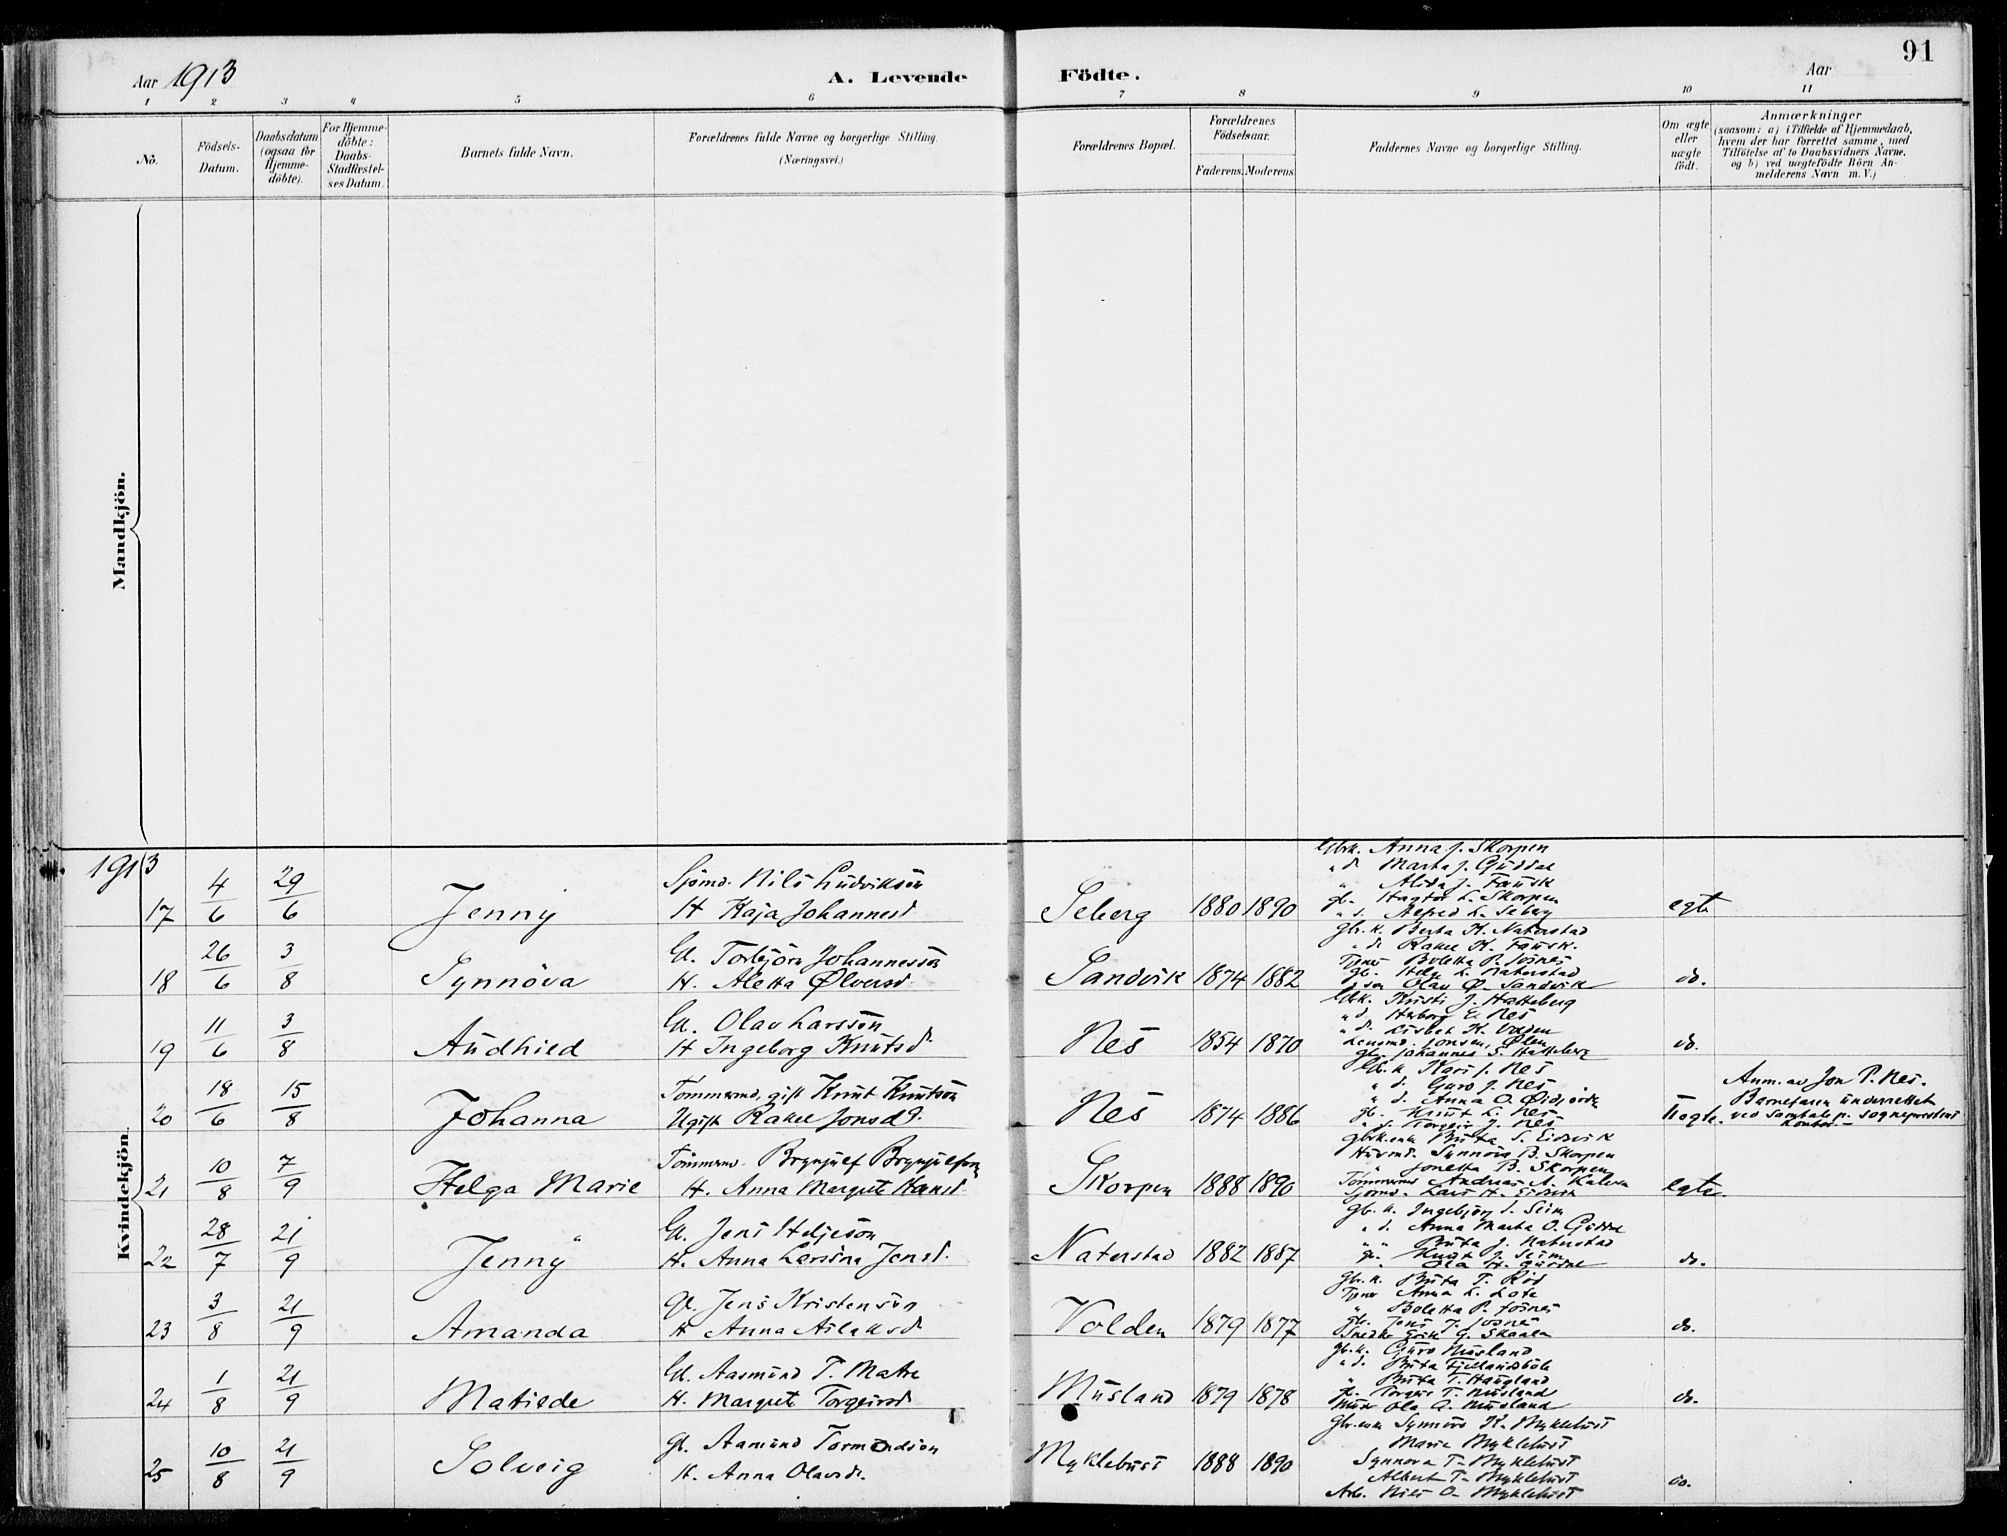 Aar 1913
A. Levende
Födte.
Aar
91
1 2 3 4 5 6 7 8 9 10 11
No.
Födsels-
Datum.
Daabsdatum
(ogsaa for
Hjemme-
döbte).
For Hjemme-
döbte:
Daabs-
Stadfæstel-
ses Datum.
Barnets fulde Navn.
Forældrenes fulde Navne og borgerlige Stilling.
(Næringsvei.)
Forældrenes Bopæl.
Forældrenes
Födselsaar.
Faderens. Moderens.
Faddernes Navne og borgerlige Stilling.
Om ægte
eller
uægte
födt.
Anmærkninger
(saasom: a) i Tilfælde af Hjemmedaab,
hvem der har forrettet samme, med
Tilföielse af to Daabsvidners Navne,
og b) ved uægtefödte Börn An-
melderens Navn m. V.)
Mandkjön.
Kvindekjön.
1913
17 4/6 29/6 Jenny
Sjömd. Nils Ludviksön
H Kaja Johannesd
Seberg 1880 1890
Gbrk. Anna J. Skorpen
" d. Marta J. Guddal
" Alida J. Fausk
gb. L. Skorpen
" s. Alfred L. Seberg
egte
18 26/6 3/8 Synnöva
G. Torbjörn Johannessön
H. Aletta Ølversd.
Sandvik 1874 1882
Gbr. k. Berta H. Naterstad
" d. Rakel K. Fausk.
Tjener Boletta P. Josnes
gb. Helge L. Naterstad
" sön Olav Ø. Sandvik
do.
19 11/6 3/8 Audhild
G. Olav Larssön
H Ingeborg Knutsd.
Nes 1854 1870
Gbk. Kristi J. Hatteberg
" d. Herborg E. Nes
" d. Lisbet K. Valen
Lensmd. Jonsen, Ølen
gb. Johannes S. Hatteberg
do.
20 18/6 15/8 Johanna
Tömmermd. gift Knut Knutsön
Ugift Rakel Jonsd.
Nes 1874 1886
Gb. k Kari J. Nes
" d. Guro J. Nes
" d. Anna O. Øidfjorden
gb. Knut L. Nes
" s. Torgeir J. Nes
Uegte.
Anm. av Jon P. Nes.
Barnefaren underrettet
ved samtale p. sogneprestens
kontor.
21 10/8 7/9 Helga Marie
Tömmermd. Brynjulf Brynjulfsen
H. Anna Margrete Hansd.
Skorpen 1888 1890
Gbrk.enke Brita S. Eidsvik
Husmd. Synnöva B. Skorpen
" Jonetta B. Skorpen
Tömmermd Andreas A. Kalven
Sjömd. Lars H. Eidsvik
egte.
22 28/7 21/9 Jenny
G. Jens Heljeson
H. Anna Larsina Jensd.
Naterstad 1882 1887
Gb. k. Ingebjörg S. Seim
" d. Anna Marta O. Guddal
" " Brita J. Naterstad
gb. Knut J. Seim
" Ola H. Guddal
do.
23 3/8 21/9 Amanda
Gl. Jens Kristensön
H Anna Aslaksd.
Volden 1879 1877
Gb. k. Brita T. Röd
Tjener Anna L. Lote
" Boletta P. Josnes
gb. Jens J. Josnes
Snedker Erik G. Skaala
do.
24 1/8 21/9 Matilde
G. Aasmund T. Matre
H. Margrete Torgeirsd
Musland 1879 1878
Gb. k. Guro Musland
" d. Brita Fjellandsböle
" Brita T. Haugland
gb. Torgeir T. Musland
Murer Ola A. Musland
do.
25 10/8 21/9 Solveig
G. Aamund Tormodson
H. Anna Olavsdr.
Myklebust 1888 1890
Gbr.enke Synnöve K. Myklebust
Marie Myklebust
Synnöva T. Myklebust
Albert T. Myklebust
Arb. Nils O. Myklebust
do.